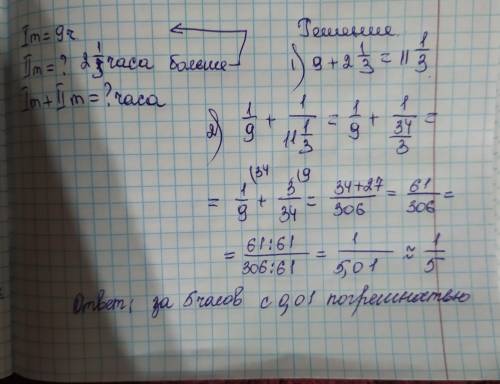 Im = 9ч
IIm = ? 2 1/3 часа больше
Im + IIm = ? часа
Решение
1) 9 + 2 1/3 = 11 1/3
2) 1/9 + 1/(11 1/3) = 1/9 + 1/(34/3) =
= 1/9 (34 + 3/34 (9 = (34+27)/306 = 61/306 =
= (61:61)/(306:61) = 1/5,01 ≈ 1/5
Ответ: за 5 часов с 0,01 погрешностью